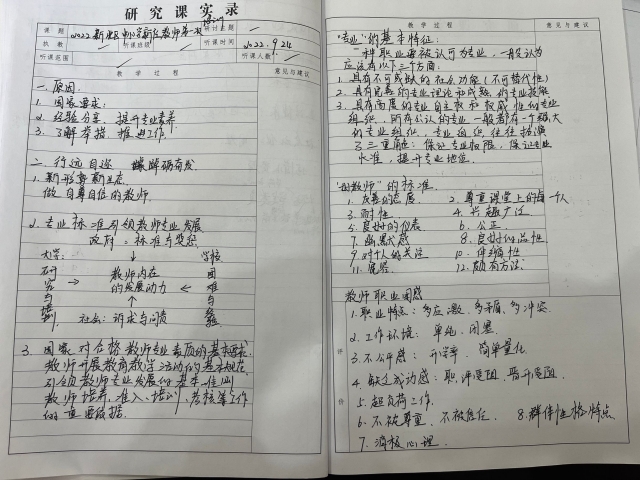 研究课实录
课题 2022新
研讨主题
执教
听课班级
听课时间 2022.9.24
听课范围
听课人数
教学过程
意见与建议
一、原因
1. 国家要求:
2. 经验分享, 提升专业素养
3. 了解举措 推进工作.
二、行远自迩
1. 新形势 新生态
做自尊自信的教师.
2. 专业标准引领教师专业发展
政府:标准与
大学: ↓ 学校
教师内在
的发展动力
↑
社会:诉求与问责
3. 国家对合格教师专业素质的基本要求.
教师开展教育教学活动的基本规范
引领教师专业发展的基本准则
教师培养、准入、培训、考核等工作
的重要依据.
教学过程
意见与建议
"专业"的基本特征:
一种职业要被认可为专业, 一般认为
应该有以下三个方面:
1. 具有不可或缺的社会功能(不可替代性)
2. 具有完善的专业理论和成熟的专业技能
3. 具有高度的专业自主权和权威性的专业
组织, 所有公认的专业一般都有一个强大
的专业组织, 专业组织往往扮演
了三重角色:保证专业权限, 保证专业
水准, 提升专业地位.
"好教师"的标准.
1. 友善的态度 2. 尊重课堂上的每一个人
3. 耐性 4. 兴趣广泛
5. 良好的仪表 6. 公正
7. 幽默感 8. 良好的品性
9. 对个人的关注 10. 伸缩性
11. 宽容 12. 颇有方法
教师职业困惑
1. 职业特点:多应激、多矛盾、多冲突.
2. 工作环境:单纯、闭塞
3. 不公平感: 简单量化
4. 缺乏成功感:职评受阻, 晋升受阻
5. 超负荷工作.
6. 不被尊重、不被信任. 8. 群体性格特点
7. 消极心理.
评
价